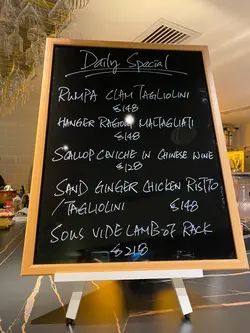 Daily Special
RUMPA CLAM TAGLIOLINI
$148
HANGER RAGOUT MALTAGLIATI
$148
SCALLOP CEVICHE IN CHINESE WINE
$128
SAND GINGER CHICKEN RISTTO
/TAGLIOLINI $148
SOUS VIDE LAMB of RACK
$218